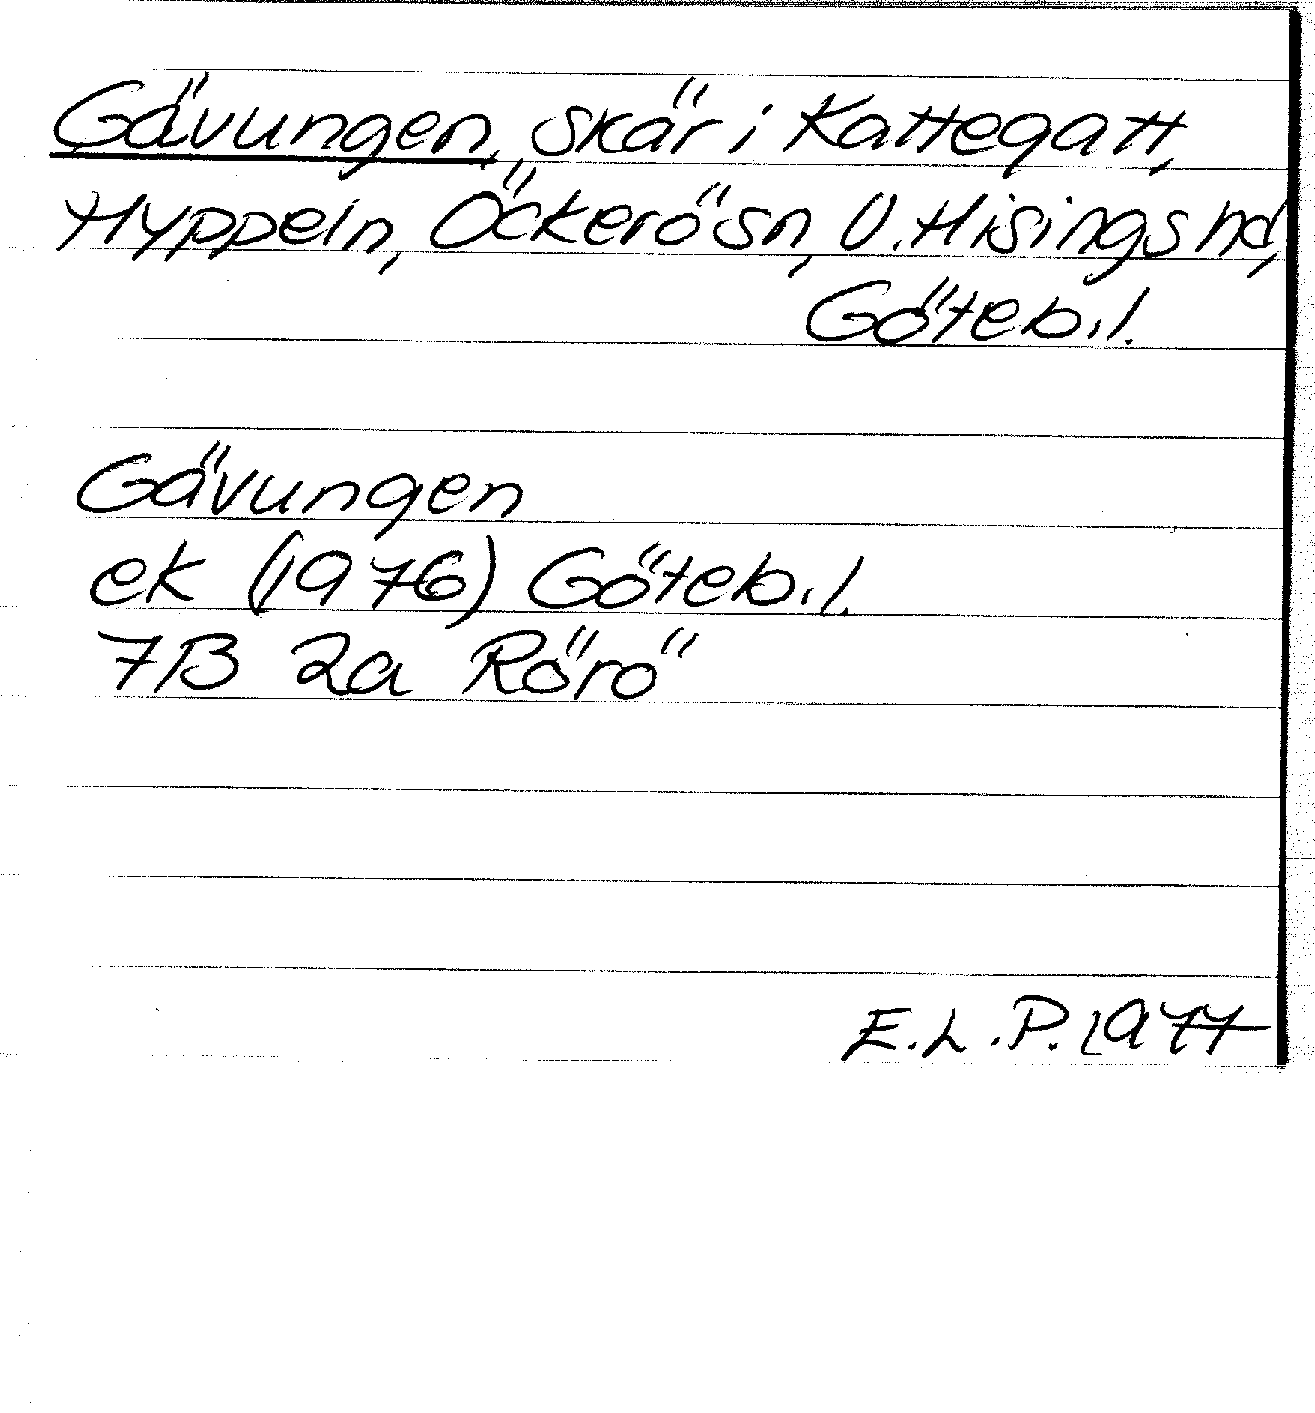 Gävungen, skär i Kattegatt,
Hyppeln, Öckerö sn, V. Hisings hd,
Göteb. l.
Gävungen
ek (1976) Göteb. l.
7B 2a Rörö
E.L.P. 1977